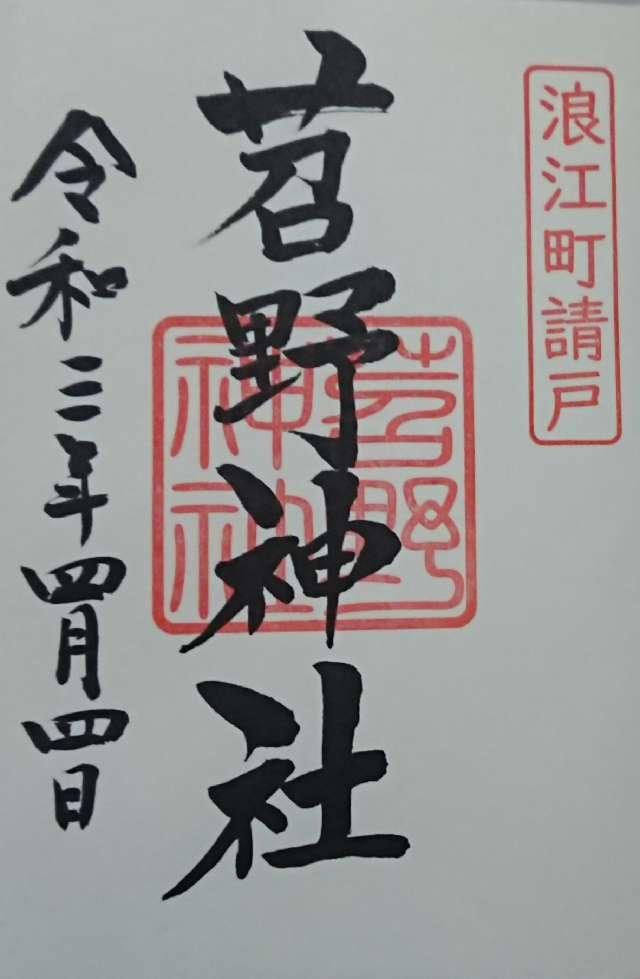 浪江町請戸
苕野神社
苕野神社
令和三年四月四日